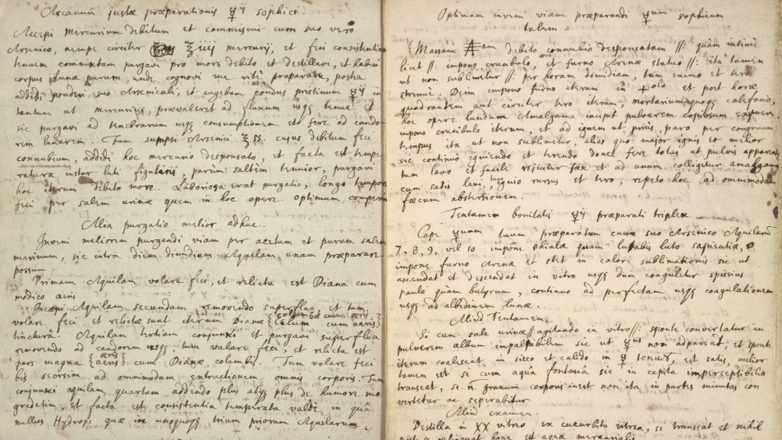 Arcanum justæ præparationis ☿ij sophici.
Accepi mercurium debitum et commixui cum suo vero
Arsenico, nempe circiter ℥iiij mercurij, et feci consistentiam
tenuem commixtam purgavi pro more debito et destillavi, et habui
corpus Lunæ purum, unde cognovi me rite præparasse, postea
addidi ponderi suo Arsenicali, et augebam pondus pristinum ☿ij in
tantum ut mercurius prævaleret ad fluxum usq tenuem et
sic purgavi ad tenebrarum usq consumptionem fere ad cando
rem lunarem. Tum sumpsi Arsenici ℥ss. cujus debitum feci
connubium, addidi hoc mercurio desponsato, et facta est tempe
ratura instar luti figularis, parum saltem tenuior, purgavi
hoc iterum debito more. Laboriosa erat purgatio, longo tempore
feci per salem urinæ quem in hoc opere optimum comperi
Alia purgatio melior adhuc.
Inveni meliorem purgandi viam per acetum et purum salem
marinum, sic intra diem dimidium Aquilam, unam præparare
possum
Primam Aquilam volare feci, et relicta est Diana cum
modico æris
Incepi Aquilam secundam removendo superflua, et tum
volare feci et relictæ sunt iterum Dianæ cum æris
tinctura. Aquilam tertiam conjunxi et purgavi superflua
removendo ad candorem usq tum volare feci, et relicta est
pars magna æris cum Dianæ columbis. Tum volare feci
bis seorsim ad ommimodam extractionem omnis corporis. Tum
conjunxi aquilam quartam addendo plus atq plus de humore suo
gradatim, et facta est consistentia temperata valde in qua
nullus Hydrops, quæ in unaquaq trium priorum Aquilarum
Optimam inveni viam præparandi ☿um sophicum
talem.
Massam debito connubio desponsatam quam intime
licet impono crucibulo, et furno Arenæ statuo ita tamen
ut non sublimetur per horam dimidiam, tum eximo et tero
strenue. Dein impono furno iterum in et post horæ
quadrantem aut circiter tero iterum, mortariumq calefacio
hoc opere lucidum Amalgama incipit pulverem
impono crucibulo iterum, et ad ignem ut prius, paro per congruum
tempus ita ut non sublimetur, alias quo major ignis eo melior
sic continuo igniendo et terendo donec fere totus ut pulvis appareat
tum lavo et facile rejicitur fæx et ad unum colligitur amalgama
cum satis lavi, ignio rursus et tero, repeto hoc ad ommimodam
fæcum abstersionem
Tentamen bonitatis ☿ij præparati triplex.
Cape ☿um tuum præparatum cum suo Arsenico Aquilarum
7, 8, 9, vel 10 impone phialæ quam lutabis luto sapientiæ,
impone furno Arenæ et stet in calore sublimationis sic ut
ascendat et descendat in vitro usq dum coaguletur spissius
paulo quam butyrum, continuo ad perfectam usq coagulationem
usq ad albedinem Lunæ.
Aliud Tentamen.
Si cum sale urinæ agitando in vitro sponte convertatur in
pulverem album impalpabilem sic ut ☿us non appareat, et sponte
iterum coalescat in sicco et calido in ☿ tenuem, est satis, melior
tamen est si cum aqua fontana sic in capita imperceptibilia
transeat, se. si. granum corporis inest non ita in partes minutas con
vertetur ac separabitur
Aliud examen.
Destilla in XX vitro ex cucurbita vitrea, si transeat et nihil